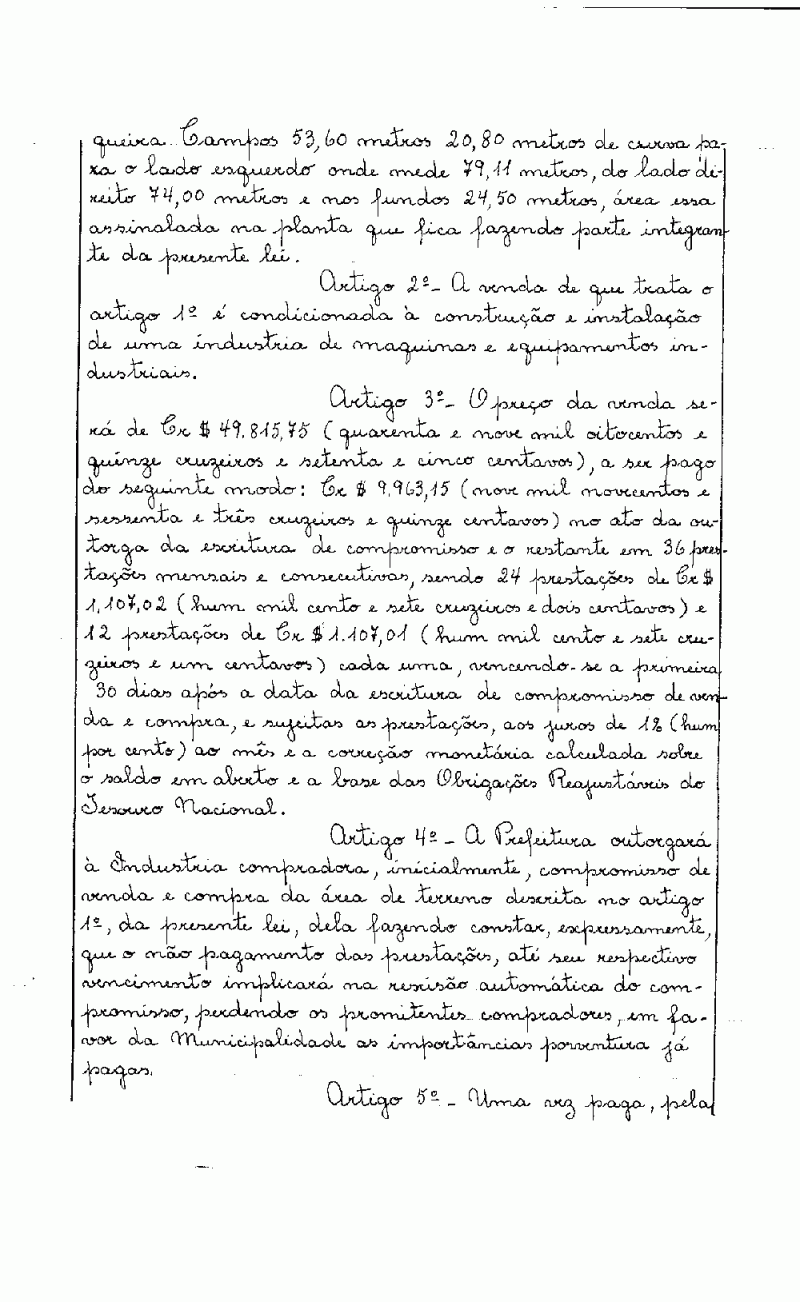 queira Campos 53,60 metros 20,80 metros de curva pa-
ra o lado esquerdo onde mede 79,11 metros, do lado di-
reito 74,00 metros e nos fundos 24,50 metros, área essa
assinalada na planta que fica fazendo parte integran-
te da presente lei.
Artigo 2º - A venda de que trata o
artigo 1º é condicionada à construção e instalação
de uma industria de maquinas e equipamentos in-
dustriais.
Artigo 3º - O preço da venda se-
rá de Cr $ 49.815,75 (quarenta e nove mil oitocentos e
quinze cruzeiros e setenta e cinco centavos), a ser pago
do seguinte modo: Cr $ 9.963,15 (nove mil novecentos e
sessenta e três cruzeiros e quinze centavos) no ato da ou-
torga da escritura de compromisso e o restante em 36 pres-
tações mensais e consecutivas, sendo 24 prestações de Cr $
1.107,02 (hum mil cento e sete cruzeiros e dois centavos) e
12 prestações de Cr $ 1.107,01 (hum mil cento e sete cru-
zeiros e um centavos) cada uma, vencendo-se a primeira
30 dias após a data da escritura de compromisso de ven-
da e compra, e sujeitas as prestações, aos juros de 1% (hum
por cento) ao mês e a correção monetária calculada sobre
o saldo em aberto e a base das Obrigações Reajustáveis do
Tesouro Nacional.
Artigo 4º - A Prefeitura outorgará
à Industria compradora, inicialmente, compromisso de
venda e compra da área de terreno descrita no artigo
1º, da presente lei, dela fazendo constar, expressamente,
que o não pagamento das prestações, até seu respectivo
vencimento implicará na resisão automática do com-
promisso, perdendo os promitentes compradores, em fa-
vor da Municipalidade as importâncias porventura já
pagas.
Artigo 5º - Uma vez paga, pela